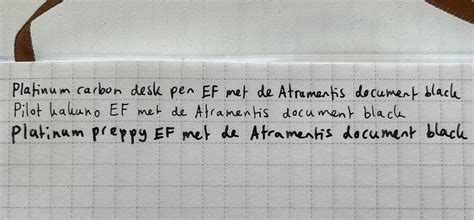 Platinum carbon desk pen EF met de Atramentis document black
Pilot kakuno EF met de Atramentis document black
Platinum preppy EF met de Atramentis document black